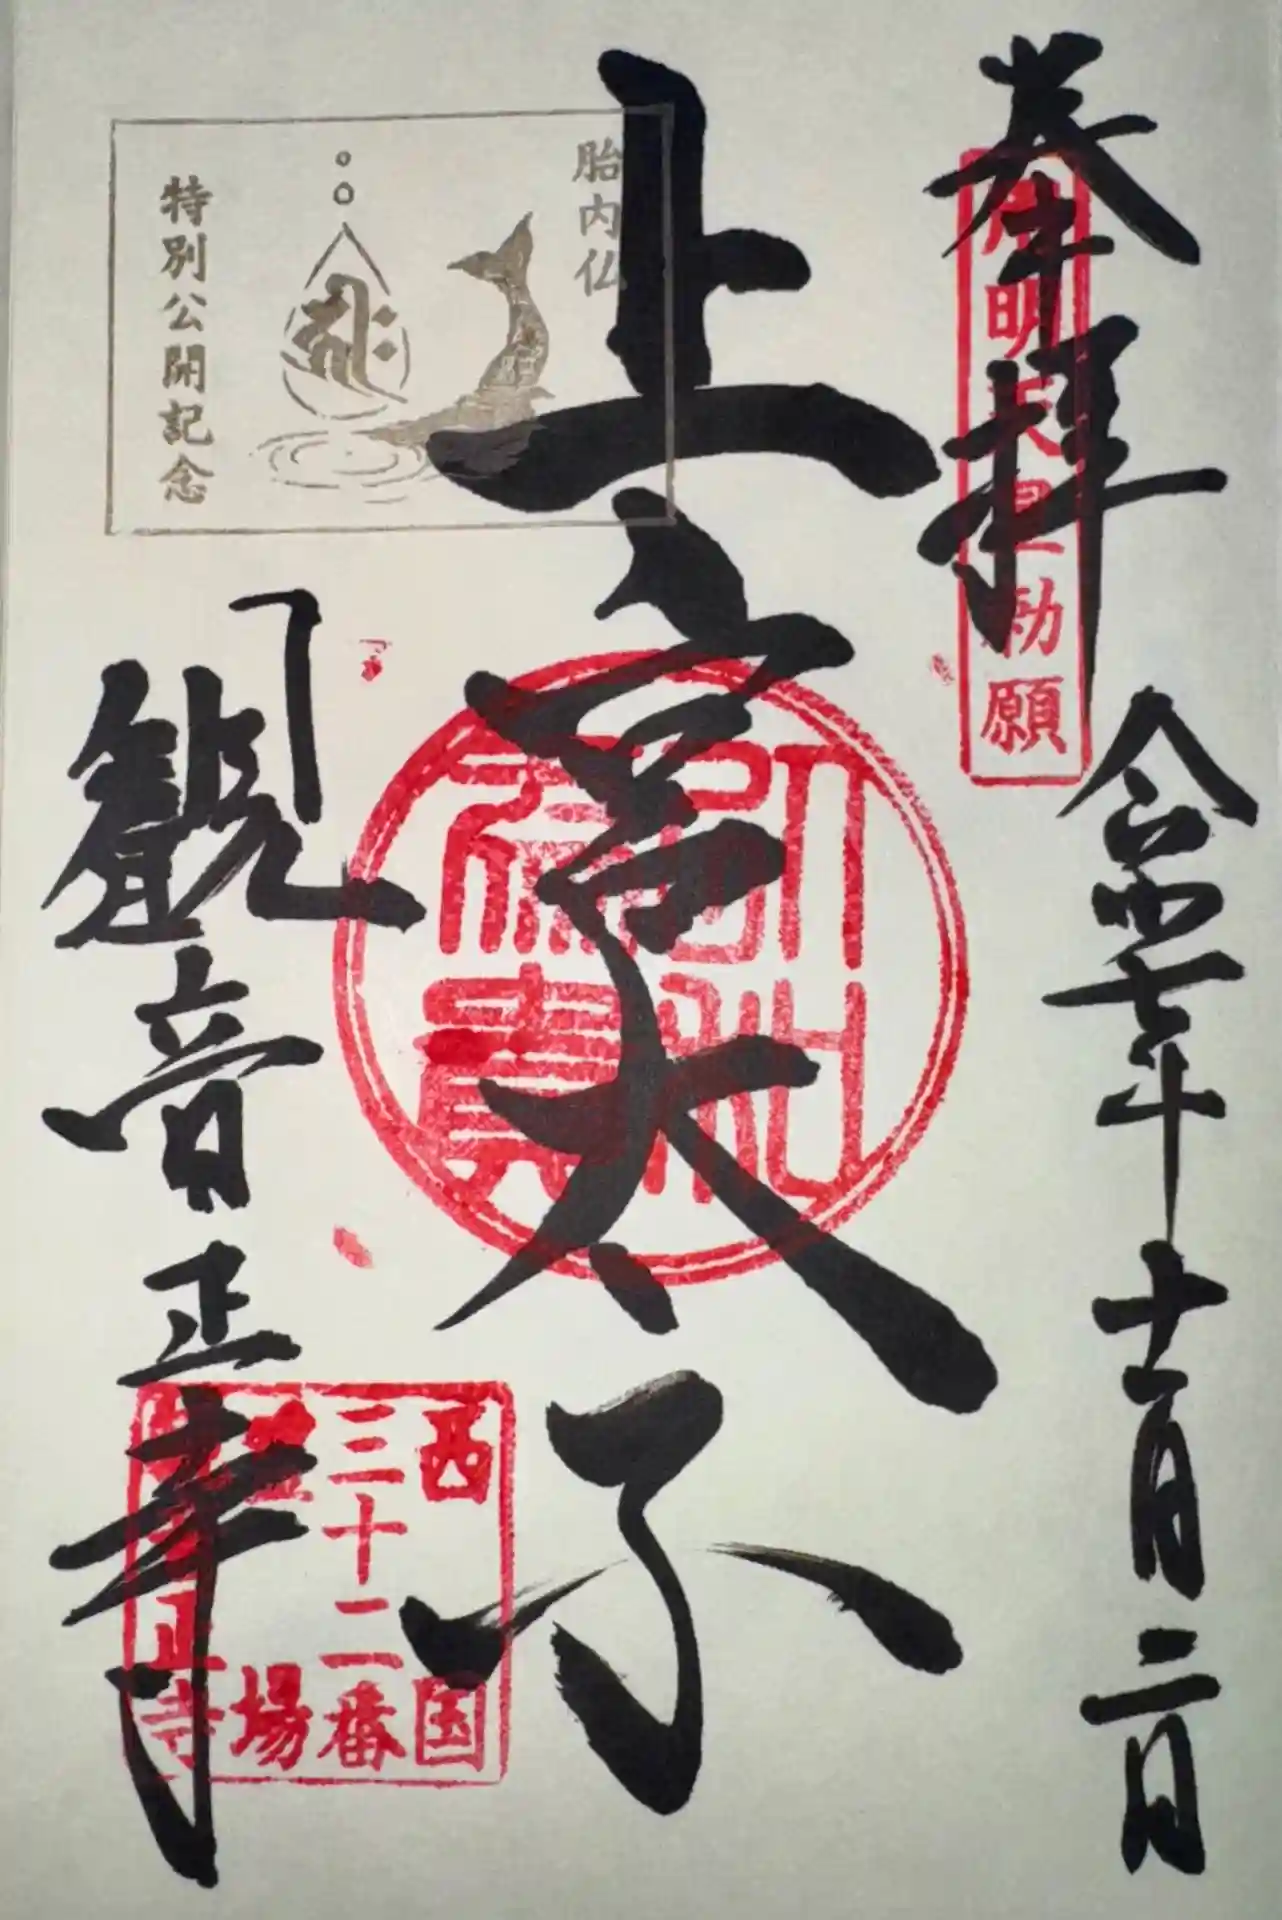 奉拝
用明天皇勅願
令和七年十一月二日
胎内仏
特別公開記念
上宮太子
觀音正寺
西国
三十二番
霊場
観音正寺